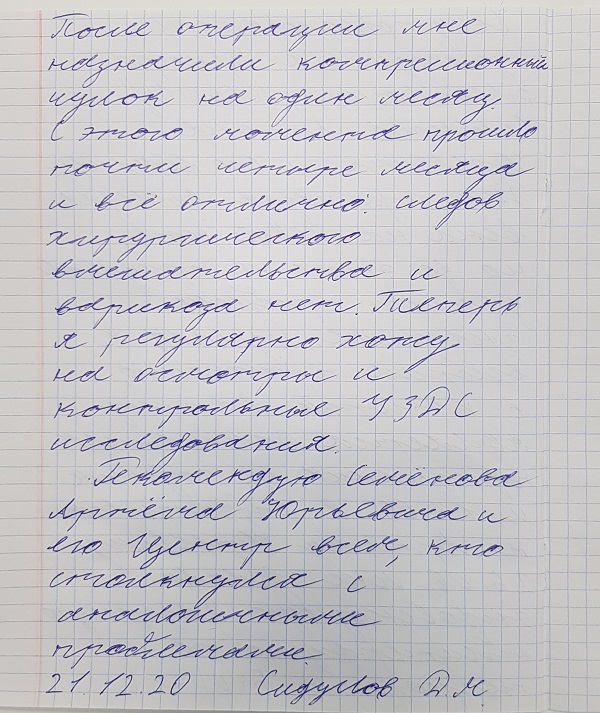 После операции мне
назначили компрессионный
чулок на один месяц.
С этого момента прошло
почти четыре месяца
и всё отлично: следов
хирургического
вмешательства и
варикоза нет. Теперь
я регулярно хожу
на осмотры и
контрольные УЗДС
исследования.
Рекомендую Семёнова
Артёма Юрьевича и
его Центр всем, кто
столкнулся с
аналогичными
проблемами.
21.12.20 Д.М